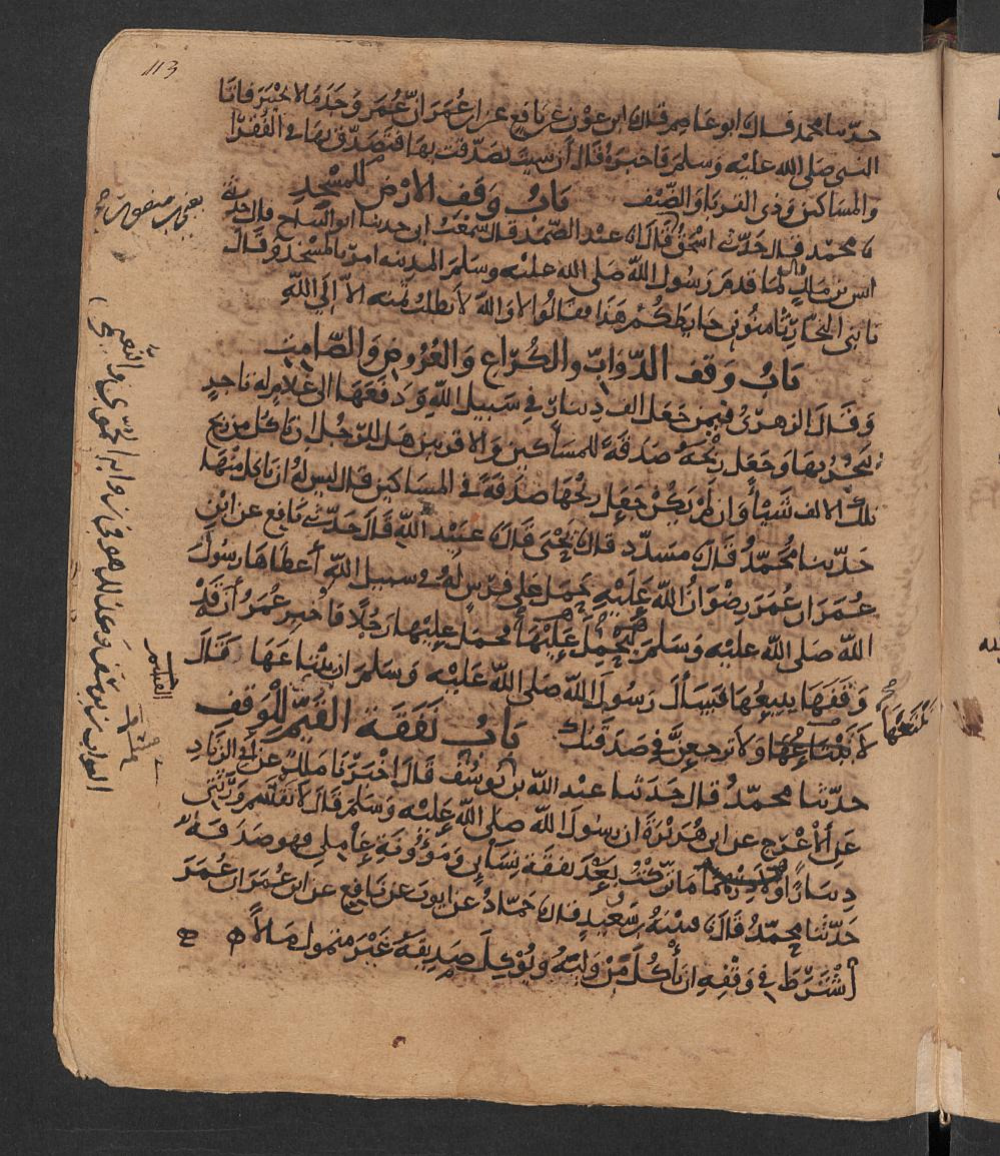 113
حدثنا محمد قال ابو عاصم قال ابن عون عن نافع عن ابن عمر ان عمر وجد مالا بخيبر فاتا
النبي صلى الله عليه وسلم فاخبره قال ان شيت تصدقت بها فتصدق بها في الفقرا
والمساكين وذي القربا والضيف باب وقف الارض للمسجد
محمد قال حدثني اسحق قال عبد الصمد قال سمعت ابي حدثنا ابو التياح قال حدثني
انس بن مالك قال لما قدم رسول الله صلى الله عليه وسلم المدينه امر بالمسجد وقال
يا بني النجار ثامنوني حايطكم هذا فقالوا لا والله لا نطلب ثمنه الا الى الله
باب وقف الدواب والكراع والعروض والصامت
وقال الزهري فيمن جعل الف دينار في سبيل الله ودفعها الى غلام له تاجر
يتجر بها وجعل ربحه صدقة للمساكين والاقربين هل للرجل ان ياكل من ربح
تلك الالف شيئا وان لم يكن جعل ربحها صدقة في المساكين قال ليس له ان ياكل منها
حدثنا محمد قال مسدد قال يحيى قال عبيد الله قال حدثني نافع عن ابن
عمر ان عمر رضوان الله عليه حمل على فرس له في سبيل الله أعطاها رسول
الله صلى الله عليه وسلم ليحمل عليها فحمل عليها رجلا فاخبر عمر أنه قد
وقفها يبيعها فسال رسول الله صلى الله عليه وسلم ان يبتاعها فقال
لا تبتاعها ولا ترجعن في صدقتك باب نفقة القيم للوقف
تبتعها
حدثنا محمد قال حدثنا عبد الله بن يوسف قال اخبرنا مالك عن ابي الزناد
عن الأعرج عن ابي هريرة ان رسول الله صلى الله عليه وسلم قال لا تقتسم ورثتي
دينارا ما تركت بعد نفقة نسائي ومؤونة عاملي فهو صدقة
حدثنا محمد قال قتيبة بن سعيد قال حماد عن ايوب عن نافع عن ابن عمر ان عمر
اشترط في وقفه ان يأكل من وليه ويؤكل صديقه غير متمول مالا